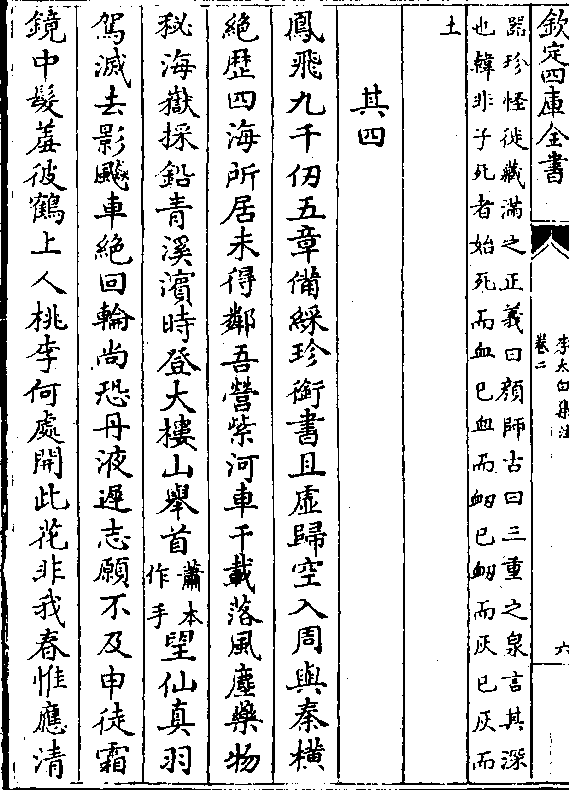 欽定四庫全書
李太白集注
卷二
六
器珍怪徙藏滿之正義曰顔師古曰三重之泉言其深
也韓非子死者始死而血已血而衂已衂而灰已灰而
土
其四
鳳飛九千仞五章備綵珍銜書且虛歸空入周與秦橫
絶歴四海所居未得鄰吾營紫河車千載落風塵藥物
秘海嶽採鉛青溪濱時登大樓山舉首蕭本作手望仙真羽
駕滅去影飇車絶回輪尚恐丹液遲志願不及申徒霜
鏡中髮羞彼鶴上人桃李何處開此花非我春惟應清